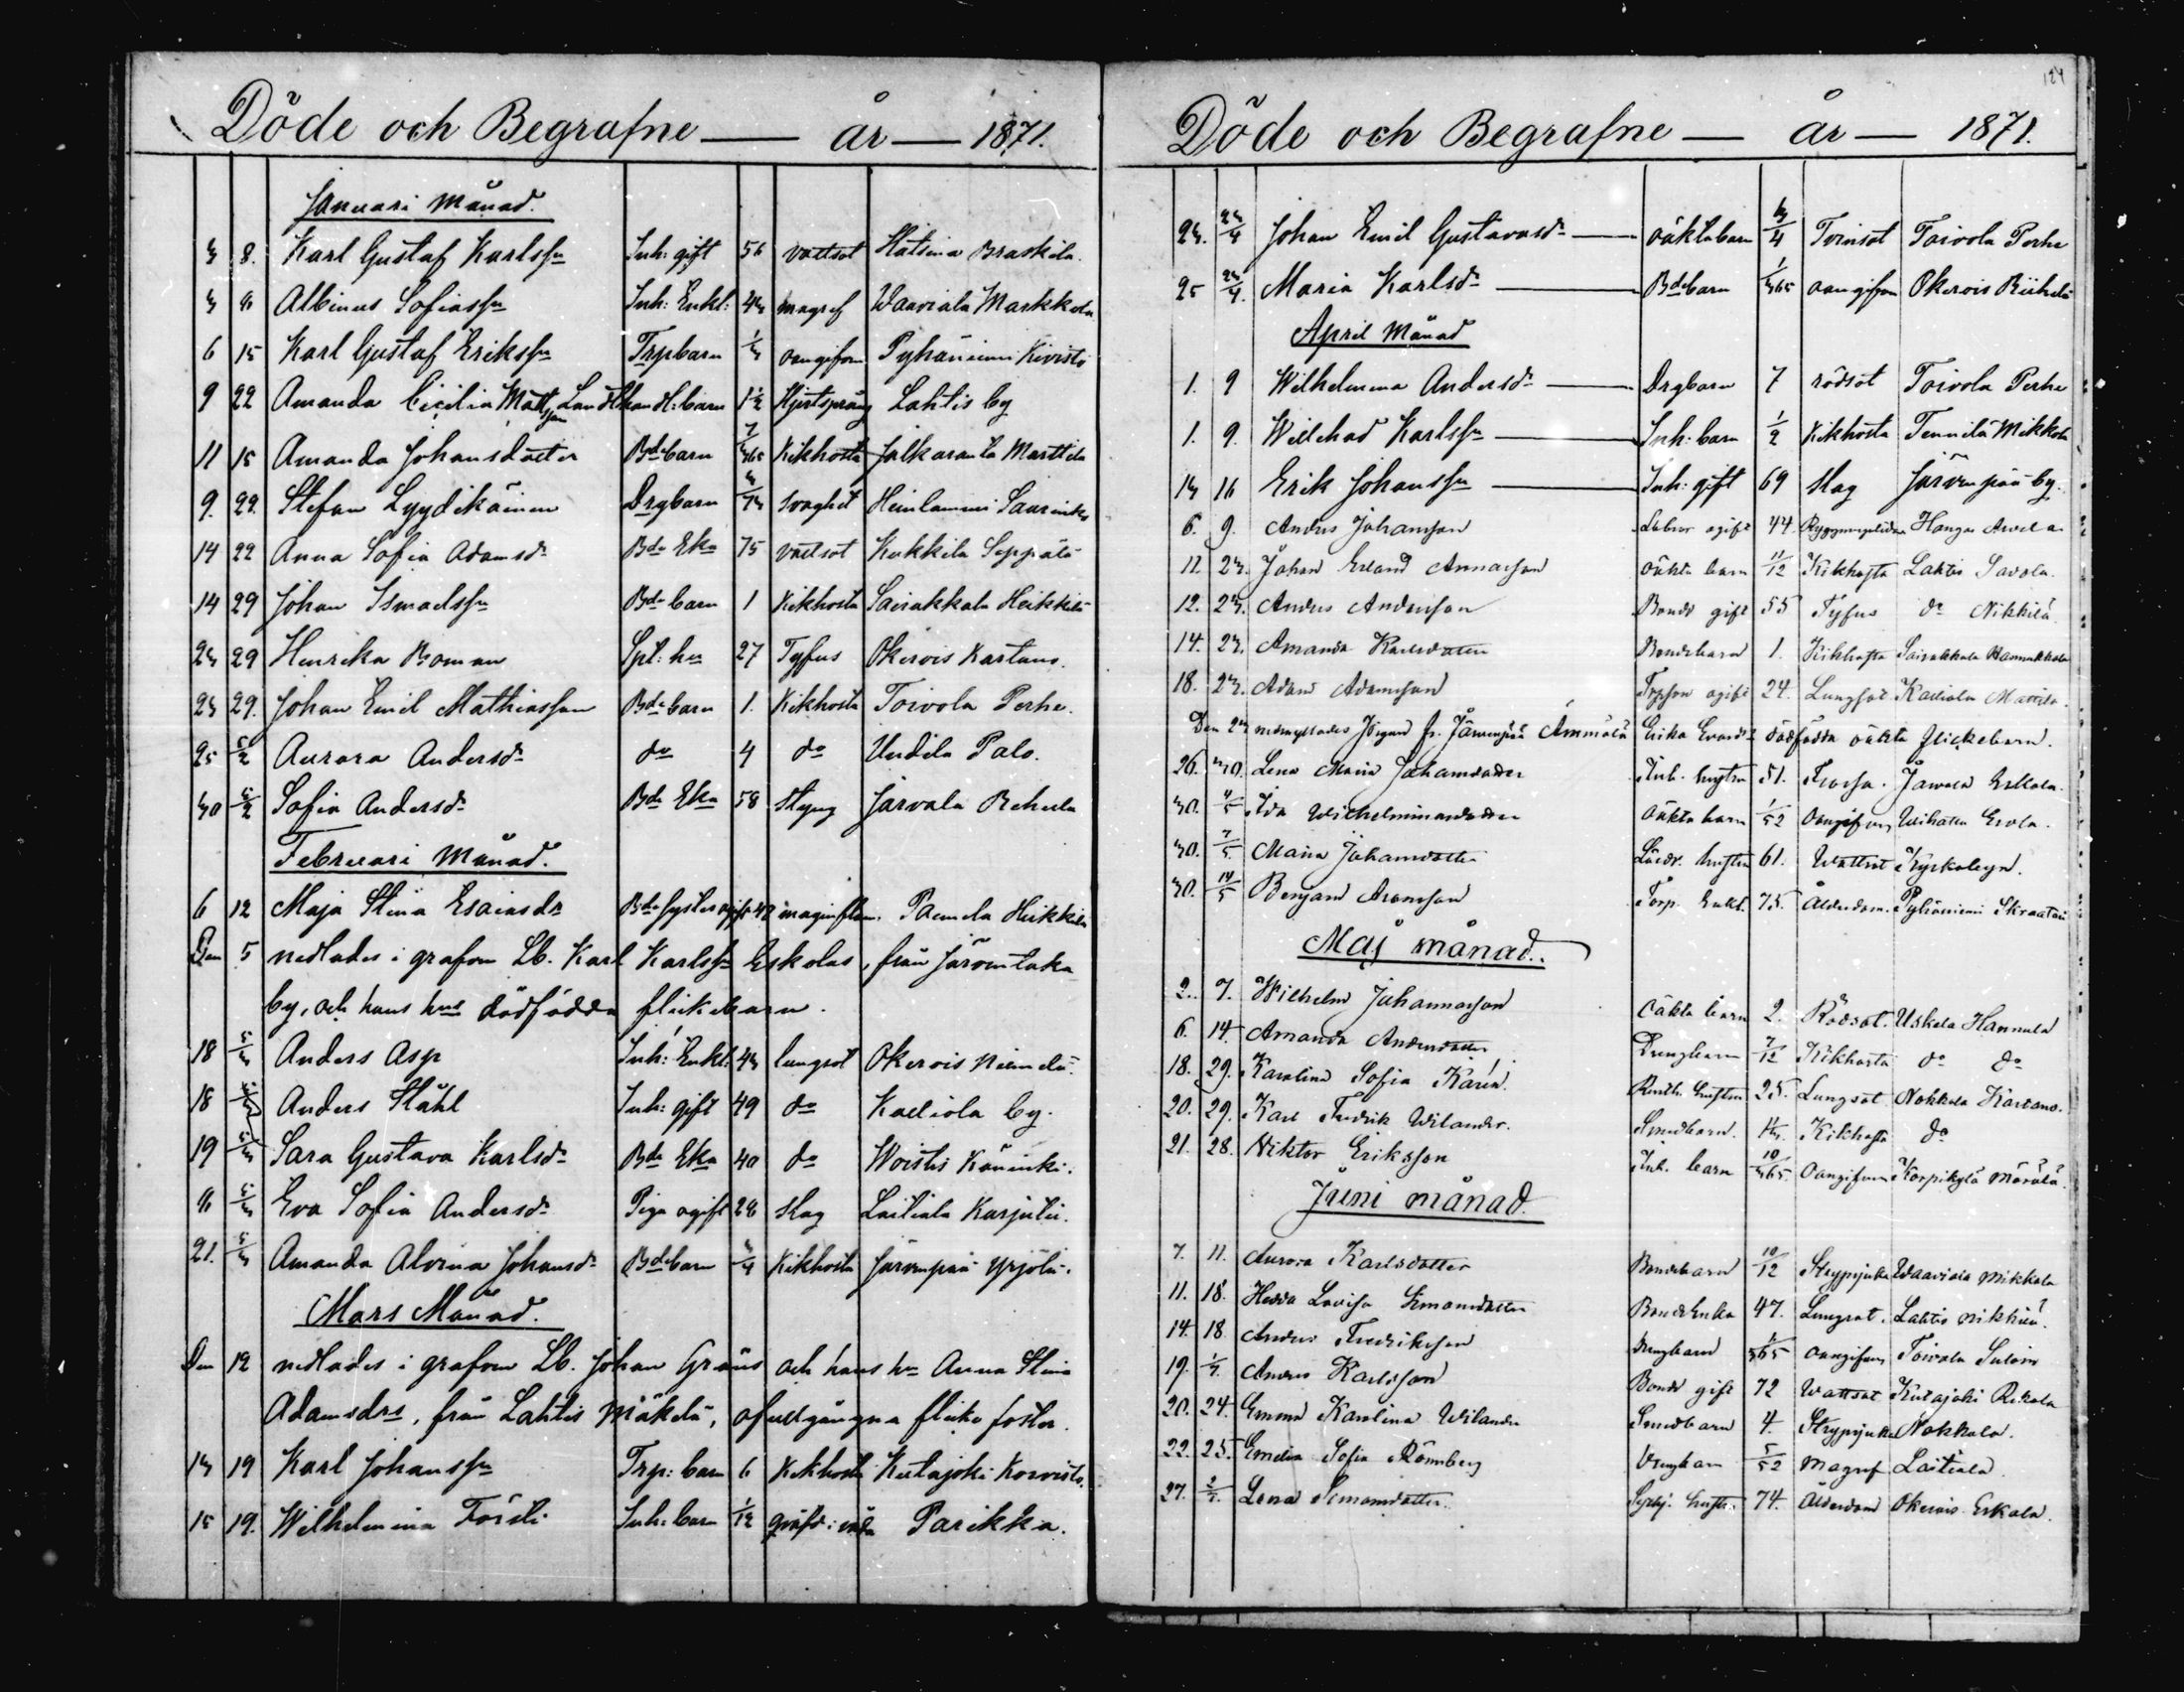 Döde och Begrafne — år — 1871.
Januari månad.
3 8. Karl Gustaf Karlssn Inh: gift 56 vattsot Hatsina Braskila.
3 8 Albinus Sofiassn Inh: Enkl: 43 magref Waaviala Markkola
6 15 Karl Gustaf Erikssn Trpbarn 1/3 oangifven Pyhäniemi Kivistö
9 22 Amanda Cicilia Matts Landthandl: barn 1 1/2 Hjertspräng Lahtis by
11 15 Amanda Johansdotter Bdebarn 7/365 Kikhosta Jalkaranta Marttila
9. 22. Stefan Lyydikäinen Drgbarn svaghet Heinlammi
14 22 Anna Sofia Adamsdr Bde Eka 75 vattsot Kukkila Seppälä
14 29 Johan Ismaelssn Bde barn 1 Kikhosta Sairakkala Heikkilä
23 29 Henrika Boman Spt: hu 27 Tyfus Okerois Kartano.
23 29. Johan Emil Mathiasson Bde barn 1. Kikhosta Toivola Perhe.
25 5/2 Aurora Andersdr do 4 do Uudila Palo.
30 5/2 Sofia Andersdr Bde Eka 58 styng Järvala Rekula
Februari månad.
6 12 Maja Stina Esaiasdr Bde syster ogift 42 maginflam. Paimela Heikkilä
Den 5 nedlades i grafven Lb. Karl Karlssn Eskolas, från Järventaka
by, och hans hus dödfödda flickebarn.
18 5/3 Anders Asp Inh: Enkl: 43 lungsot Okerois Niemelä.
18 Anders Ståhl Inh: gift 49 do Kaliola by.
19 5/3 Sara Gustava Karlsdr Bde Eka 40 do Woistis Käninki.
8 5/3 Eva Sofia Andersdr Piga ogift 28 slag Laitiala Karjulu.
21. 5/3 Amanda Alvina Johansdr Bdebarn 3/4 Kikhosta Järvenpää Yrjölä.
Mars Månad.
Den 12 nedlades i grafven Lb. Johan Gräns och hans hu Anna Stina
Adamsdrs, från Lahtis Mäkelä, ofullgångna flicke foster.
13 19 Karl Johanssn Trp: barn 6 Kikhosta Kutajoki Koivisto.
15 19. Wilhelmina Försti Inh: barn 1/12 Parikka.
124
Döde och Begrafne — år — 1871.
23. 23/4 Johan Emil Gustavasdr oäkta barn 3/4 Tvinsot Toivola Perhe
25 23/4. Maria Karlsdr Bdebarn 1/365 oangifven Okerois Riihelä
April Månad
1. 9 Wilhelmina Andersdr Drgbarn 7 rödsot Toivola Perhe
1. 9. Willehad Karlssn Inh: barn 1/2 Kikhosta Tennilä Mikkola
13 16 Erik Johanssn Inh: gift 69 slag Järvenpää by.
6. 9. Anders Johansson ogift 44. Hanga
11. 23. Johan Erland Annasson oäkta barn 11/12 Kikhosta Lahtis Savola.
12. 23. Anders Andersson Bonde gift 55 Tyfus do Nikkilä.
14. 23. Amanda Karlsdotter Bondebarn 1. Kikhosta Sairakkala Hannukkala
18. 23. Adam Adamsson Trpson ogift 24. Lungsot Kaliola Mattila.
Den 23 nedmyllades Jörgens fr. Järvenpää Ämmälä Erika Evasdr dödfödda oäkta flickebarn.
26. 30. Lena Maria Johansdotter Inh. hustru 51. Frossa. Järvala Eskola.
30. 7/5 Ida Wilhelminasdotter Oäkta barn 1/52 Oangifven Wihattu Erola.
30. 7/5 Maria Johansdotter hustru 61. Wattsot Kyrkobyn.
30. 14/5 Benjam Aronsson Torp. Enkl. 75. Ålderdom. Pyhäniemi Skraatari
Maj månad.
2. 7. Wilhelm Johannasson Oäkta barn 2. Rödsot. Uskila Hannula
6. 14. Amanda Andersdotter Drengbarn 7/12 Kikhosta do do
18. 29. Karolina Sofia Karén. hustru 25. Lungsot Nokkola Kartano.
20. 29. Karl Fredrik Wilander. Smedbarn. 1 1/3. Kikhosta do
21. 28. Viktor Eriksson Inh. barn 10/365. Oangifven Korpikylä Mörölä.
Juni månad.
7. 11. Aurora Karlsdotter Bondebarn 10/12 Strypsjuka Waaviala Mikkola
11. 18. Hedda Lovisa Simonsdotter Bonde Enka 47. Lungsot. Lahtis Nikkilä.
14. 18. Anders Fredriksson Drengbarn 1/365 Oangifven Toivola
19. 1/7. Anders Karlsson Bonde gift 72 Wattsot Kutajoki Rekola
20. 24. Emma Karolina Wilander Smedbarn 4. Strypsjuka Nokkola.
22. 25. Emelia Sofia Rönnberg Drengbarn 5/52 Magref Laitiala
27. 2/7. Lena Simonsdotter. hustru 74. Ålderdom Okerois Eskola.